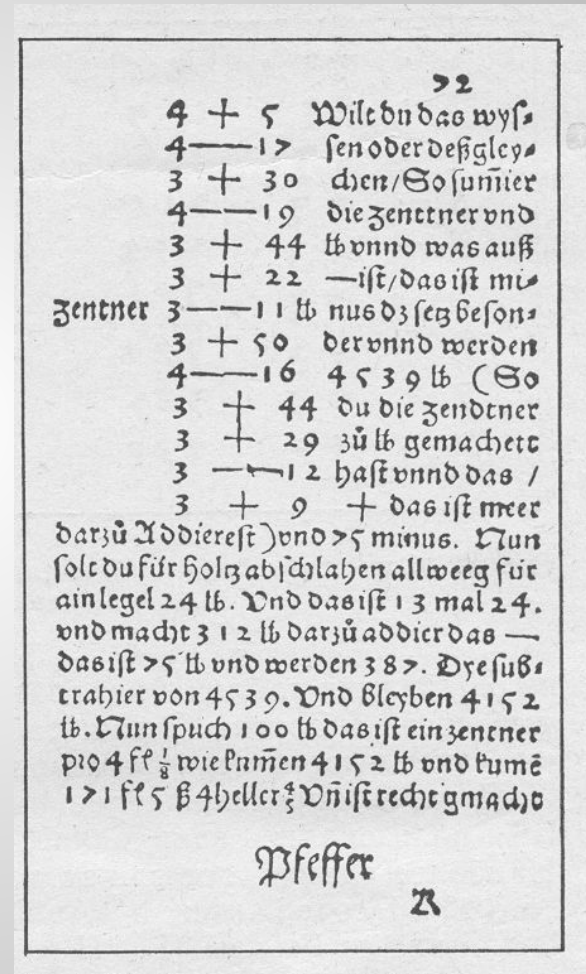 72
4 + 5 Wilt du das wyſ⸗
4 — 17 ſen oder deßgley⸗
3 + 30 chen / So ſum̄ier
4 — 19 die Zenttner vnd
3 + 44 ℔ vnnd was auß
3 + 22 — iſt / das iſt mi⸗
Zentner 3 — 11 ℔ nus dz ſetz beſon⸗
3 + 50 der vnnd werden
4 — 16 4539 ℔ (So
3 + 44 du die Zendtner
3 + 29 zů ℔ gemachett
3 — 12 haſt vnnd das /
3 + 9 + das iſt meer
darzů Addiereſt) vnd 75 minus. Nun
ſolt du für Holtz abſchlahen allweeg für
ain legel 24 ℔. Vnd das iſt 13 mal 24.
vnd macht 312 ℔ darzů addier das —
das iſt 75 ℔ vnd werden 387. Dye ſub⸗
trahier von 4539. Vnd bleyben 4152
℔. Nun ſpuch 100 ℔ das iſt ein zentner
pro 4 fl ⅛ wie kum̄en 4152 ℔ vnd kumē
171 fl 5 ß 4 heller ⅘ Vn̄ iſt recht gmacht
Pfeffer